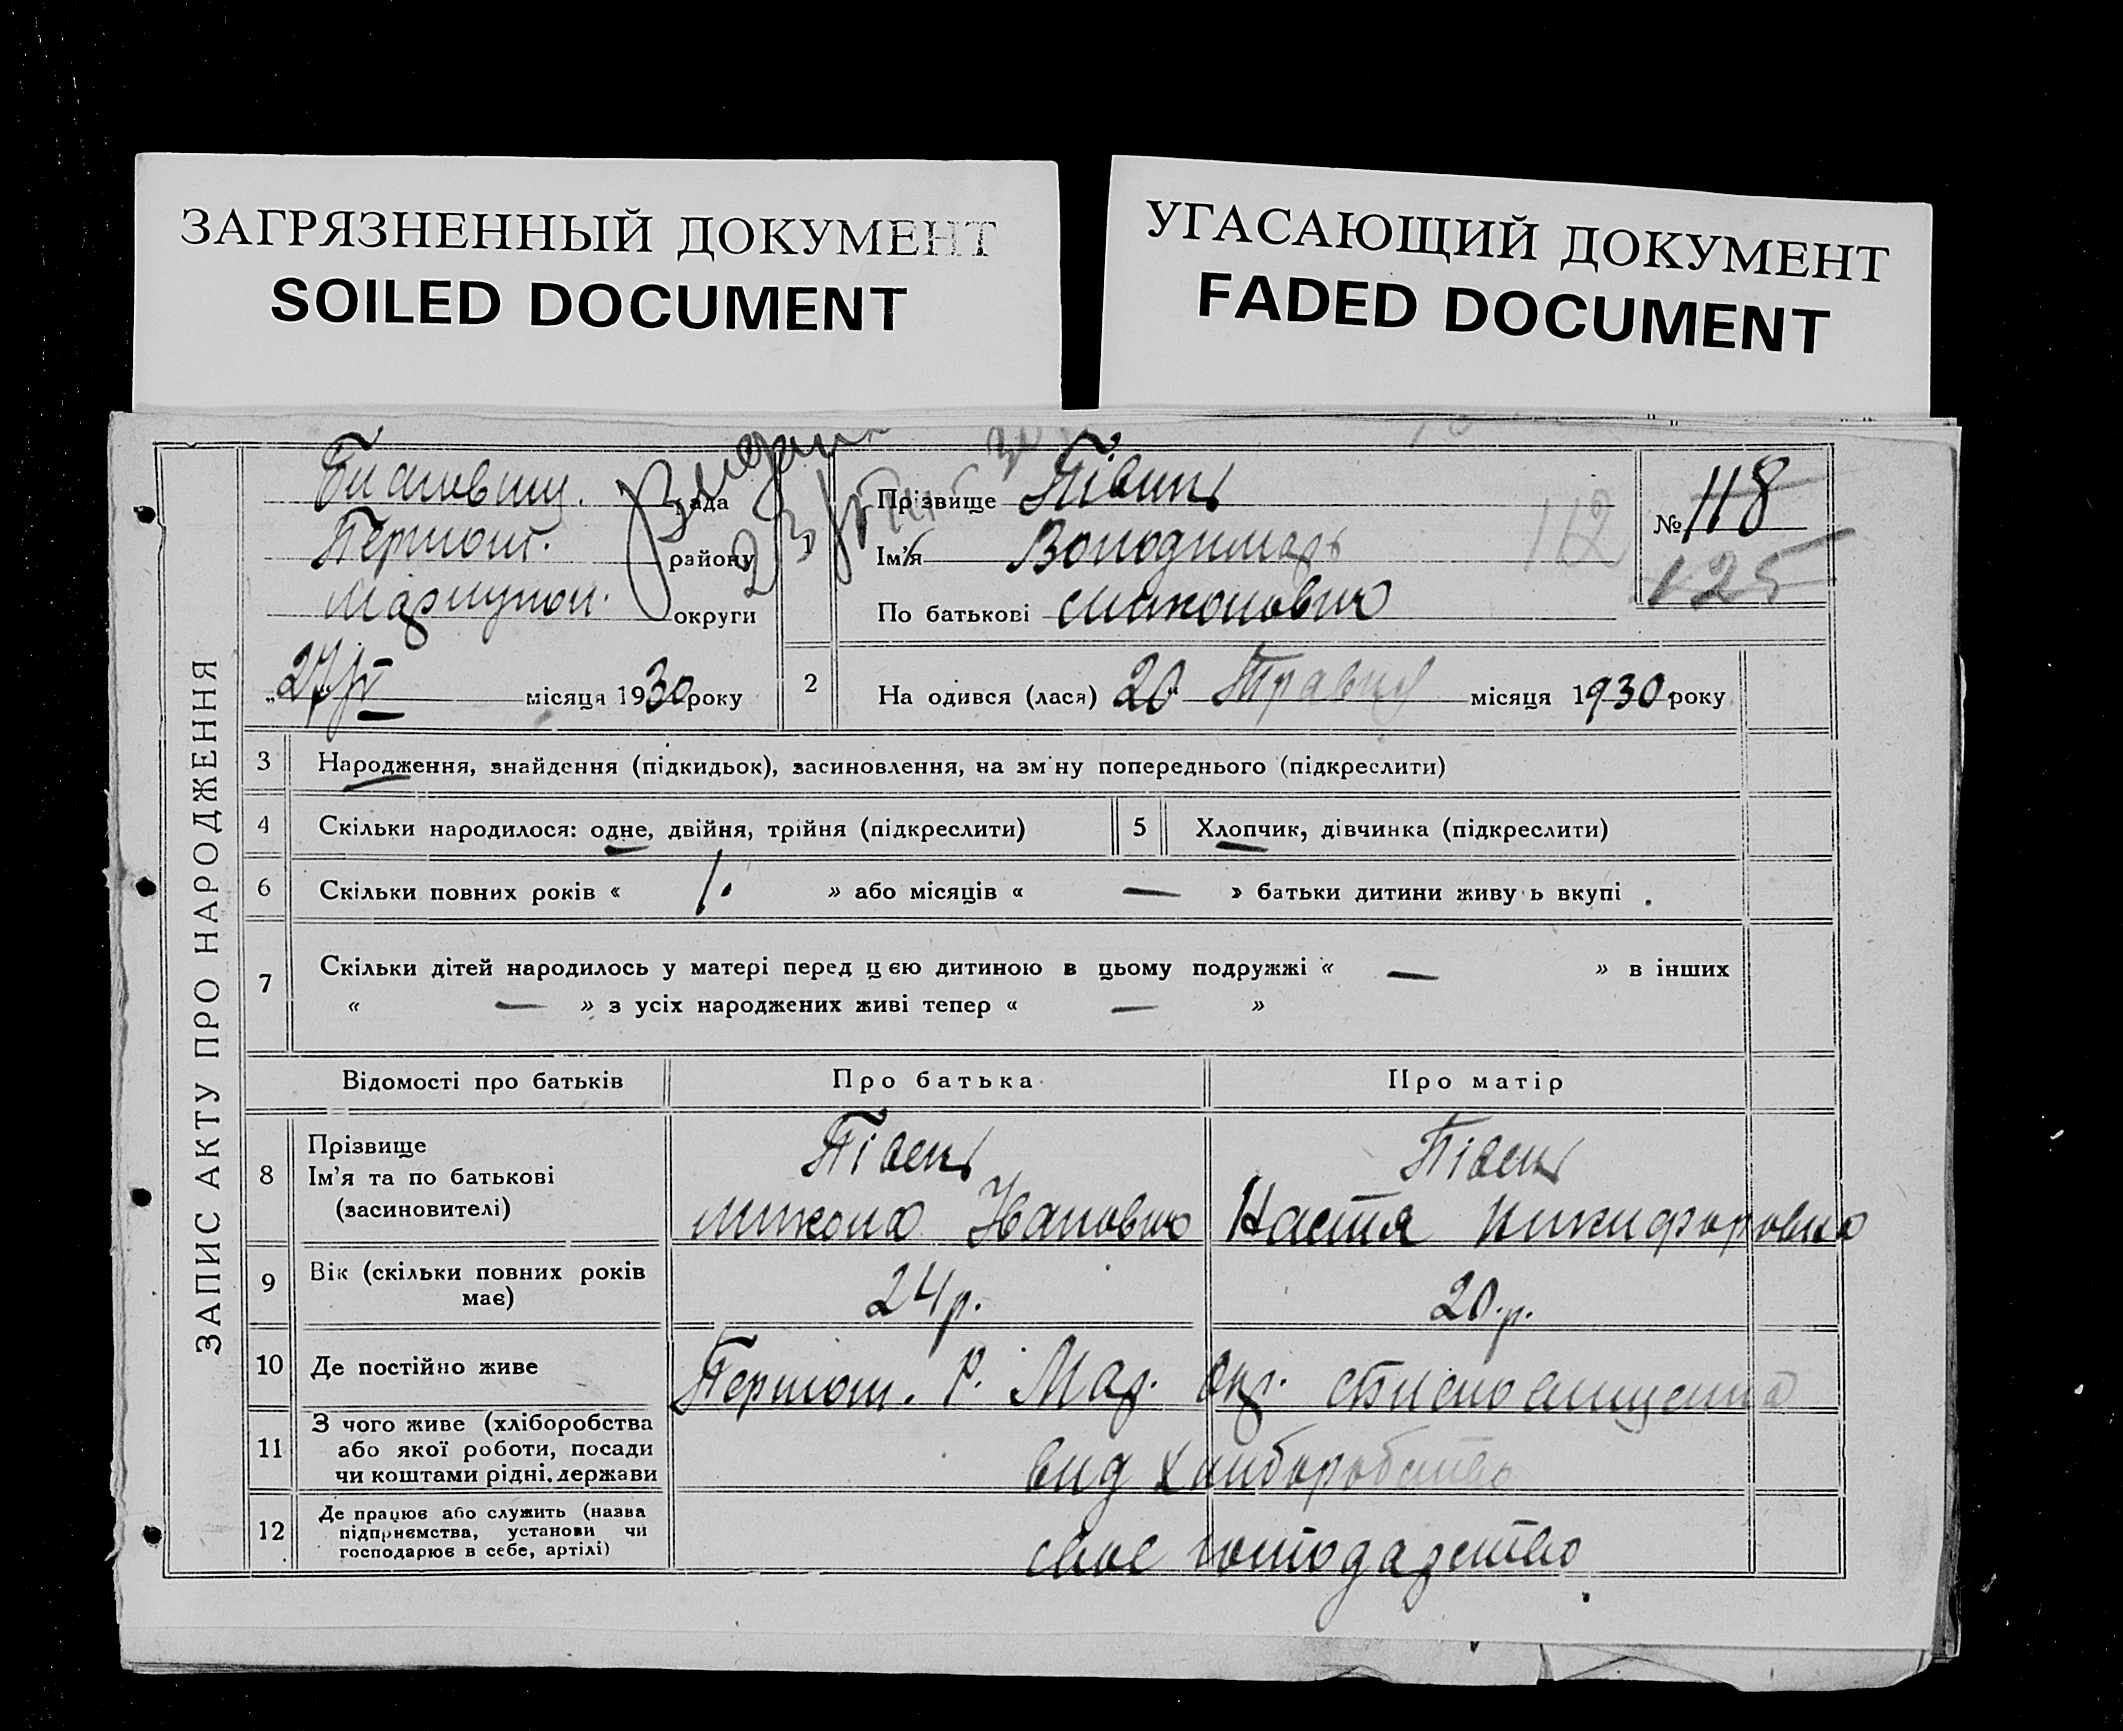 ЗАГРЯЗНЕННЫЙ ДОКУМЕНТ
SOILED DOCUMENT
УГАСАЮЩИЙ ДОКУМЕНТ
FADED DOCUMENT
ЗАПИС АКТУ ПРО НАРОДЖЕННЯ
рада
району
Маріупол. округи
"27/VI місяця 1930 року
1 Прізвище Півень
Ім'я Володимар
По батькові Миколович
№ 118
112
125
2 На одився (лася) 20 Травня місяця 1930 року
3 Народження, знайдення (підкидьок), засиновлення, на зм ну попереднього (підкреслити)
4 Скільки народилося: одне, двійня, трійня (підкреслити) 5 Хлопчик, дівчинка (підкреслити)
6 Скільки повних років « 1. » або місяців « — » батьки дитини живу ь вкупі .
7 Скільки дітей народилось у матері перед ц єю дитиною в цьому подружжі « — » в інших
« — » з усіх народжених живі тепер « — »
Відомості про батьків Про батька Про матір
8 Прізвище Півень Півень
Ім'я та по батькові
(засиновителі) Микола Іванович Настя Никифоровна
9 Вік (скільки повних років
має) 24 р. 20. р.
10 Де постійно живе Першот. Р. Мар. Окр.
11 З чого живе (хліборобства
або якої роботи, посади
чи коштами рідні, держави вид хлиборобство
12 Де працює або служить (назва
підприємства, установи чи
господарює в себе, артілі) свое господарство